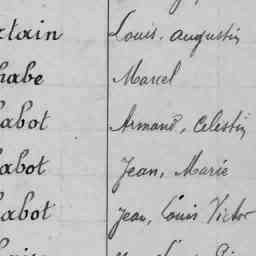 Louis, augustin
Marcel
abot Armand, Celestin
abot Jean, Marie
abot Jean, Louis Victor